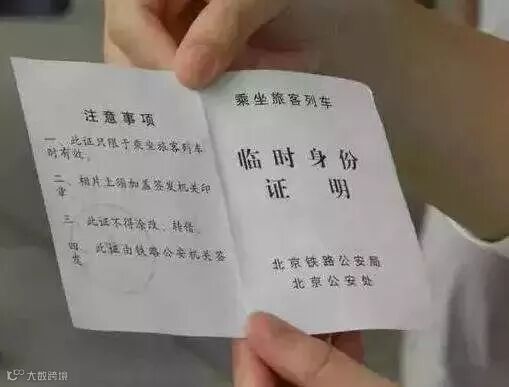 注意事项
一、此证只限于乘坐旅客列车
时有效。
二、相片上须加盖签发机关印
章
三、此证不得涂改、转借。
四、此证由铁路公安机关签
发
乘坐旅客列车
临时身份
证明
北京铁路公安局
北京公安处
大数跨境